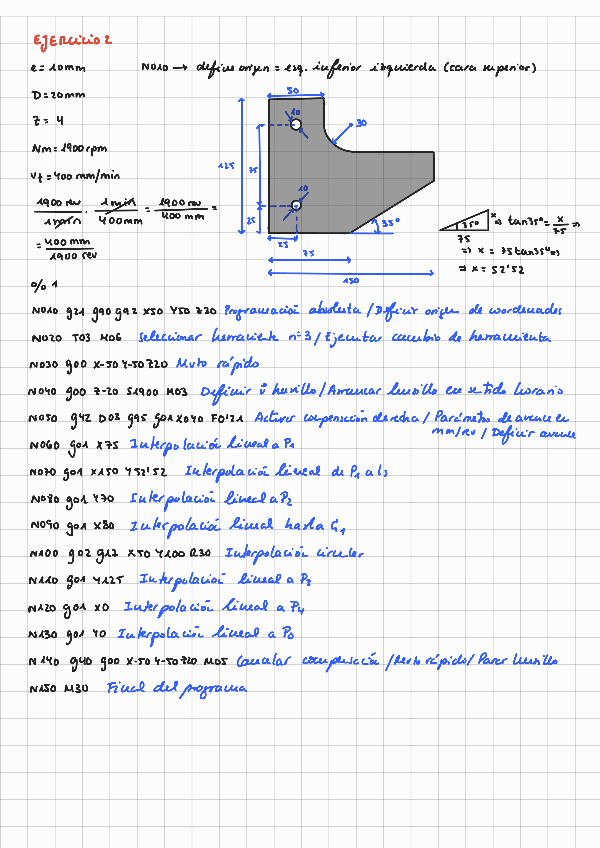 EJERCICIO 2
e = 10mm N010 → define origen = esq. inferior izquierda (cara superior)
D = 20mm
Z = 4
Nm = 1900rpm
Vf = 400 mm/min
1900 rev / 1min · 1min / 400mm = 1900 rev / 400 mm =
= 400 mm / 1900 rev
50
10
30
125
75
10
25
35°
25
75
150
35° x ⇒ tan35° = x/75 ⇒
75
⇒ x = 75tan35° ⇒
⇒ x = 52'52
% 1
N010 g21 g90 g92 X50 Y50 Z20 Programación absoluta / Definir origen de coordenadas
N020 T03 M06 Seleccionar herramienta nº3 / Ejecutar cambio de herramienta
N030 g00 X-50 Y-50 Z20 Mvto rápido
N040 g00 Z-20 S1900 M03 Definir v husillo / Arrancar husillo en sentido horario
N050 g42 D03 g95 g01 X0 Y0 F0'21 Activar compensación derecha / Parámetro de avance en
mm/rev / Definir avance
N060 g01 X75 Interpolación lineal a P1
N070 g01 X150 Y52'52 Interpolación lineal de P1 a
N080 g01 Y70 Interpolación lineal a P2
N090 g01 X80 Interpolación lineal hasta C1
N100 g02 g12 X50 Y100 R30 Interpolación circular
N110 g01 Y125 Interpolación lineal a P3
N120 g01 X0 Interpolación lineal a P4
N130 g01 Y0 Interpolación lineal a P0
N140 g40 g00 X-50 Y-50 Z20 M05 Cancelar compensación / Mvto rápido / Parar husillo
N150 M30 Final del programa